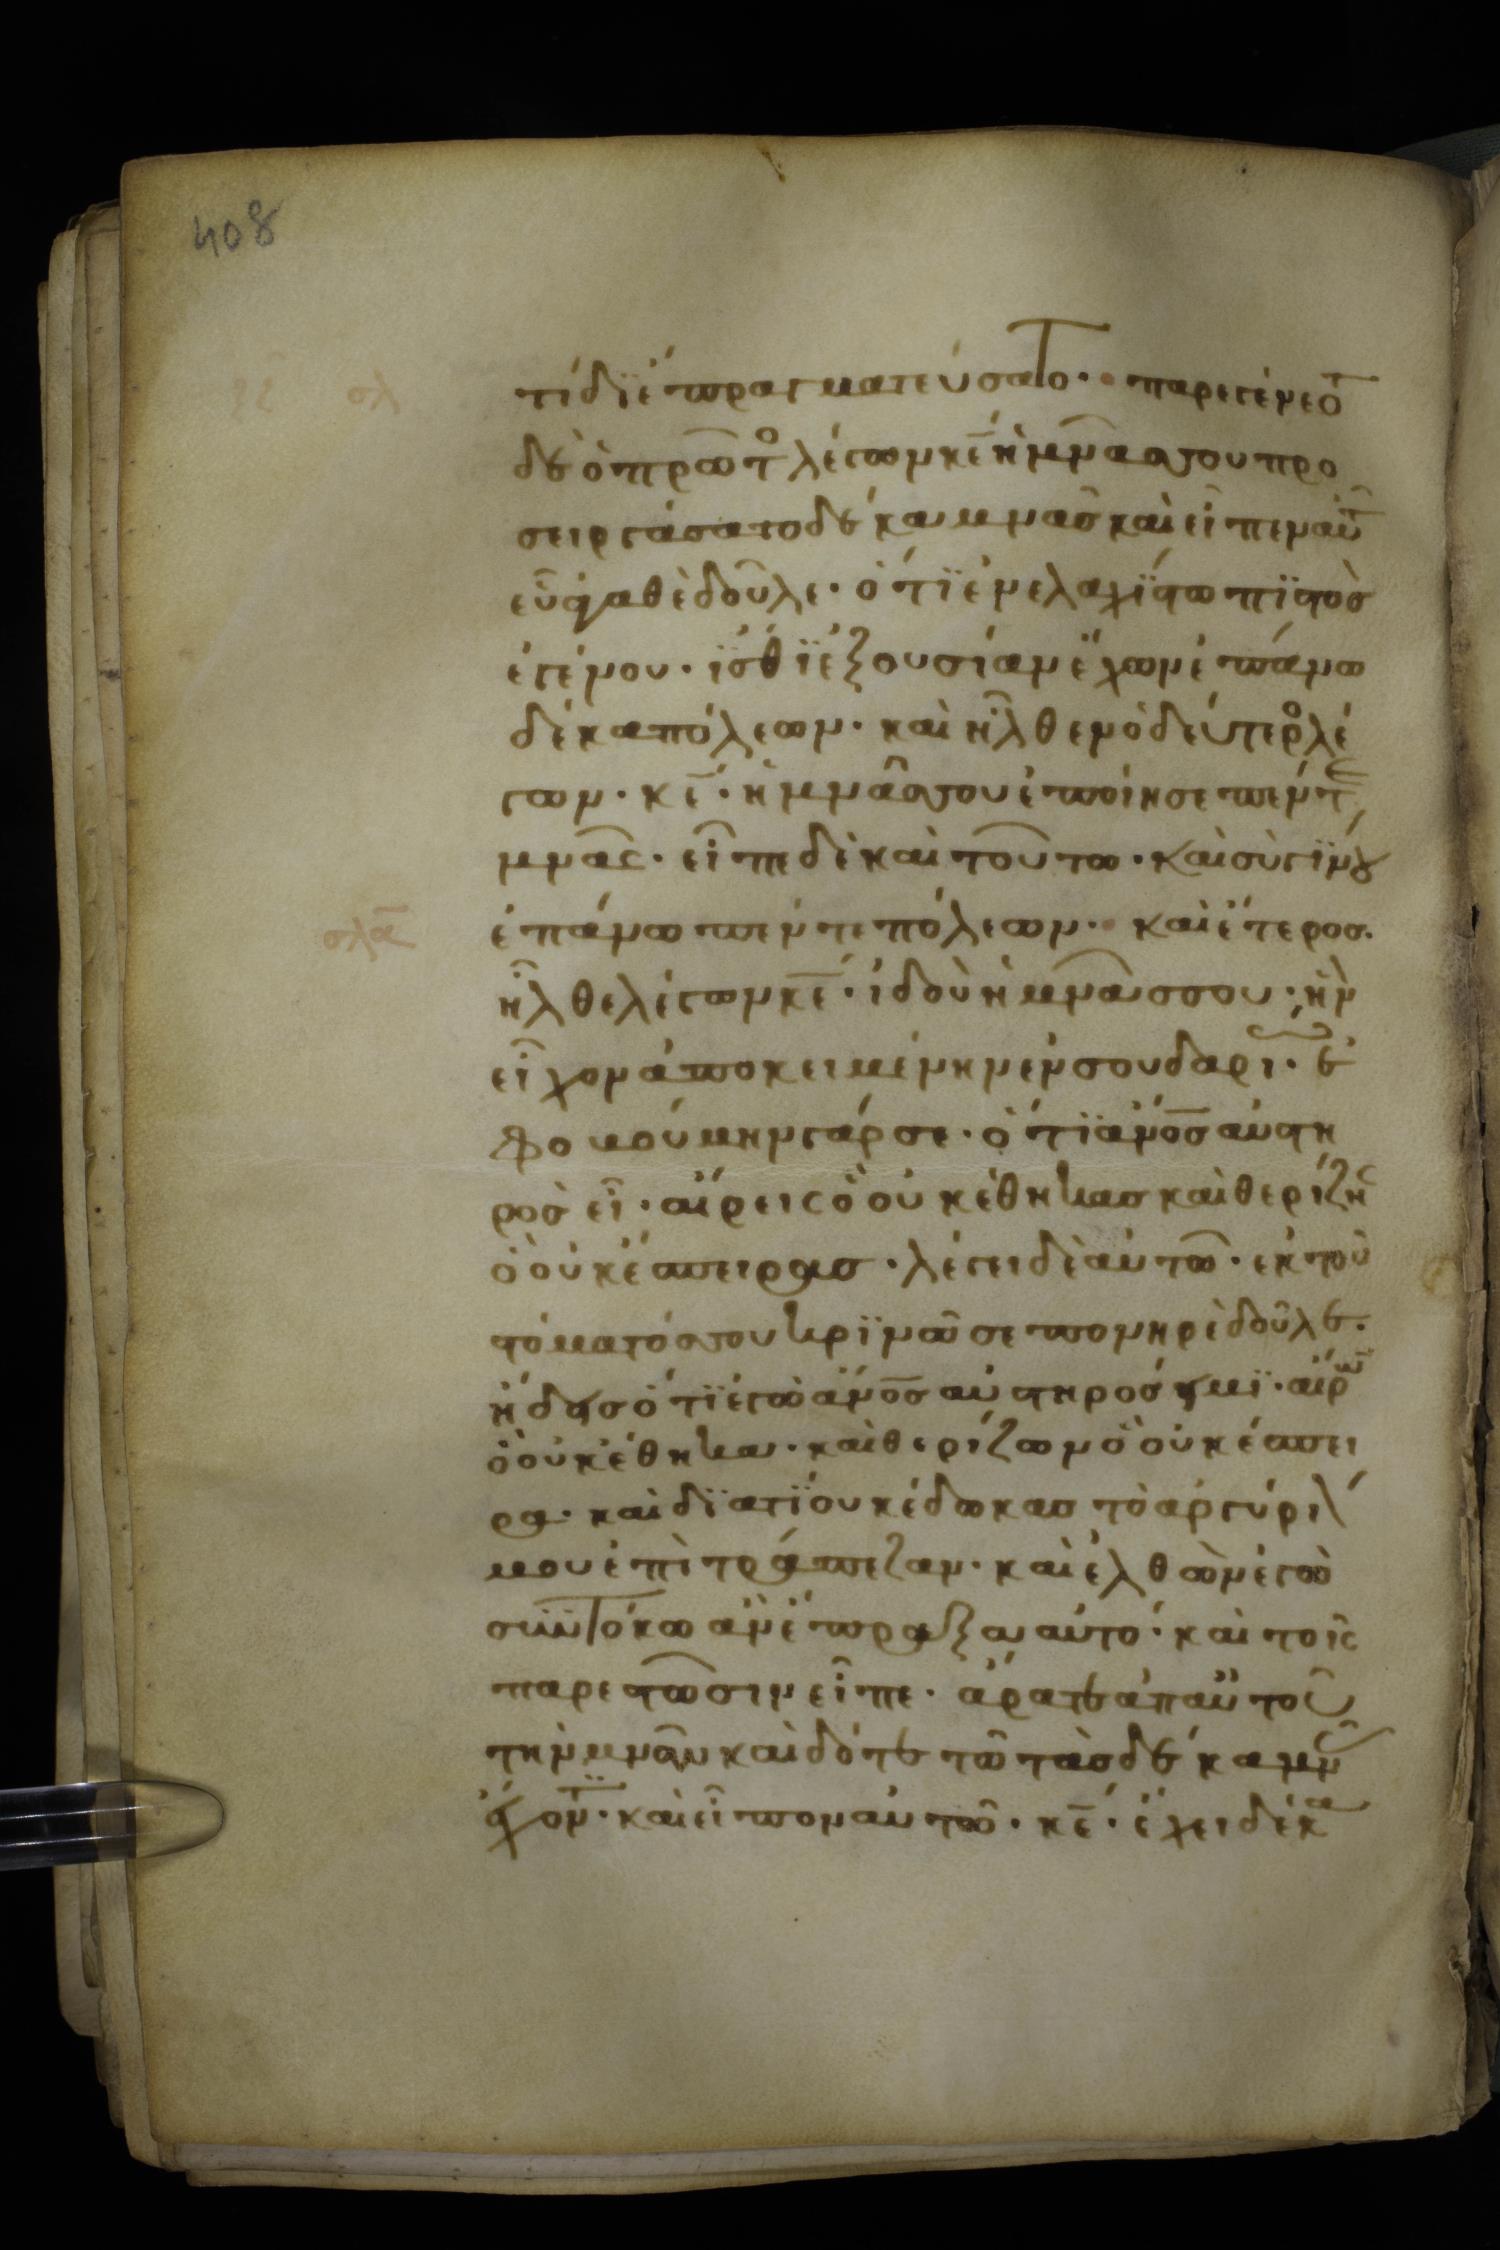 408
σλ τί δϊέπραγματεύσατο· παρεγένετο
δὲ ὁ πρῶτο λέγων κε ἡ μνᾶ σου προ
σειργάσατο δέκα μνᾶσ καὶ εἶπεν αὐτ
εὖ ἀγαθὲ δοῦλε· ὅτϊ ἐν ἐλαχίστω πϊστὸσ
ἐγένου· ἴσθϊ ἐξουσίαν ἔχων ἐπάνω
δέκα πόλεων· καὶ ἦλθεν ὁ δεύτερο λέ
γων· κε· ἡ μνᾶ σου ἐποίησε πέντε
μνᾶς· εἶπε δὲ καὶ τοῦτω· καὶ σὺ γίνου
σλα ἐπάνω πέντε πόλεων· καὶ ἕτεροσ
ἦλθε λέγων κε· ἰδοὺ ἡ μνᾶσ σου· ἣν
εἶχον ἀποκειμένην ἐν σουδαρι· ἐ
φοβούμην γάρ σε· ὅτϊ ἄνοσ αὐστη
ρὸσ εἶ· αἴρεις ὃ οὐκ ἔθηκασ καὶ θερίζης
ὃ οὐκ ἔσπειρασ· λέγει δὲ αὐτῶ· ἐκ τοῦ
στόματόσ σου κρϊνῶ σε πονηρὲ δοῦλε·
ἤδεισ ὅτϊ ἐγὼ ἄνοσ αὐστηρόσ εἰμϊ· αἴρω
ὃ οὐκ ἔθηκα· καὶ θερίζων ὃ οὐκ ἔσπει
ρα· καὶ δϊατϊ οὐκ ἔδωκασ τὸ ἀργύρι
μου ἐπὶ τράπεζαν· καὶ ἐλθὼν ἐγὼ
σὺν τόκω ἂν ἔπραξα αὐτό· καὶ τοῖς
παρεστῶσιν εἶπε· ἄρατε ἀπ αὐτοῦ
τὴν μνᾶν καὶ δότε τῶ τὰσ δέκα μν
ἔχοντι· καὶ εἶπον αὐτῶ· κε· ἔχει δέκα